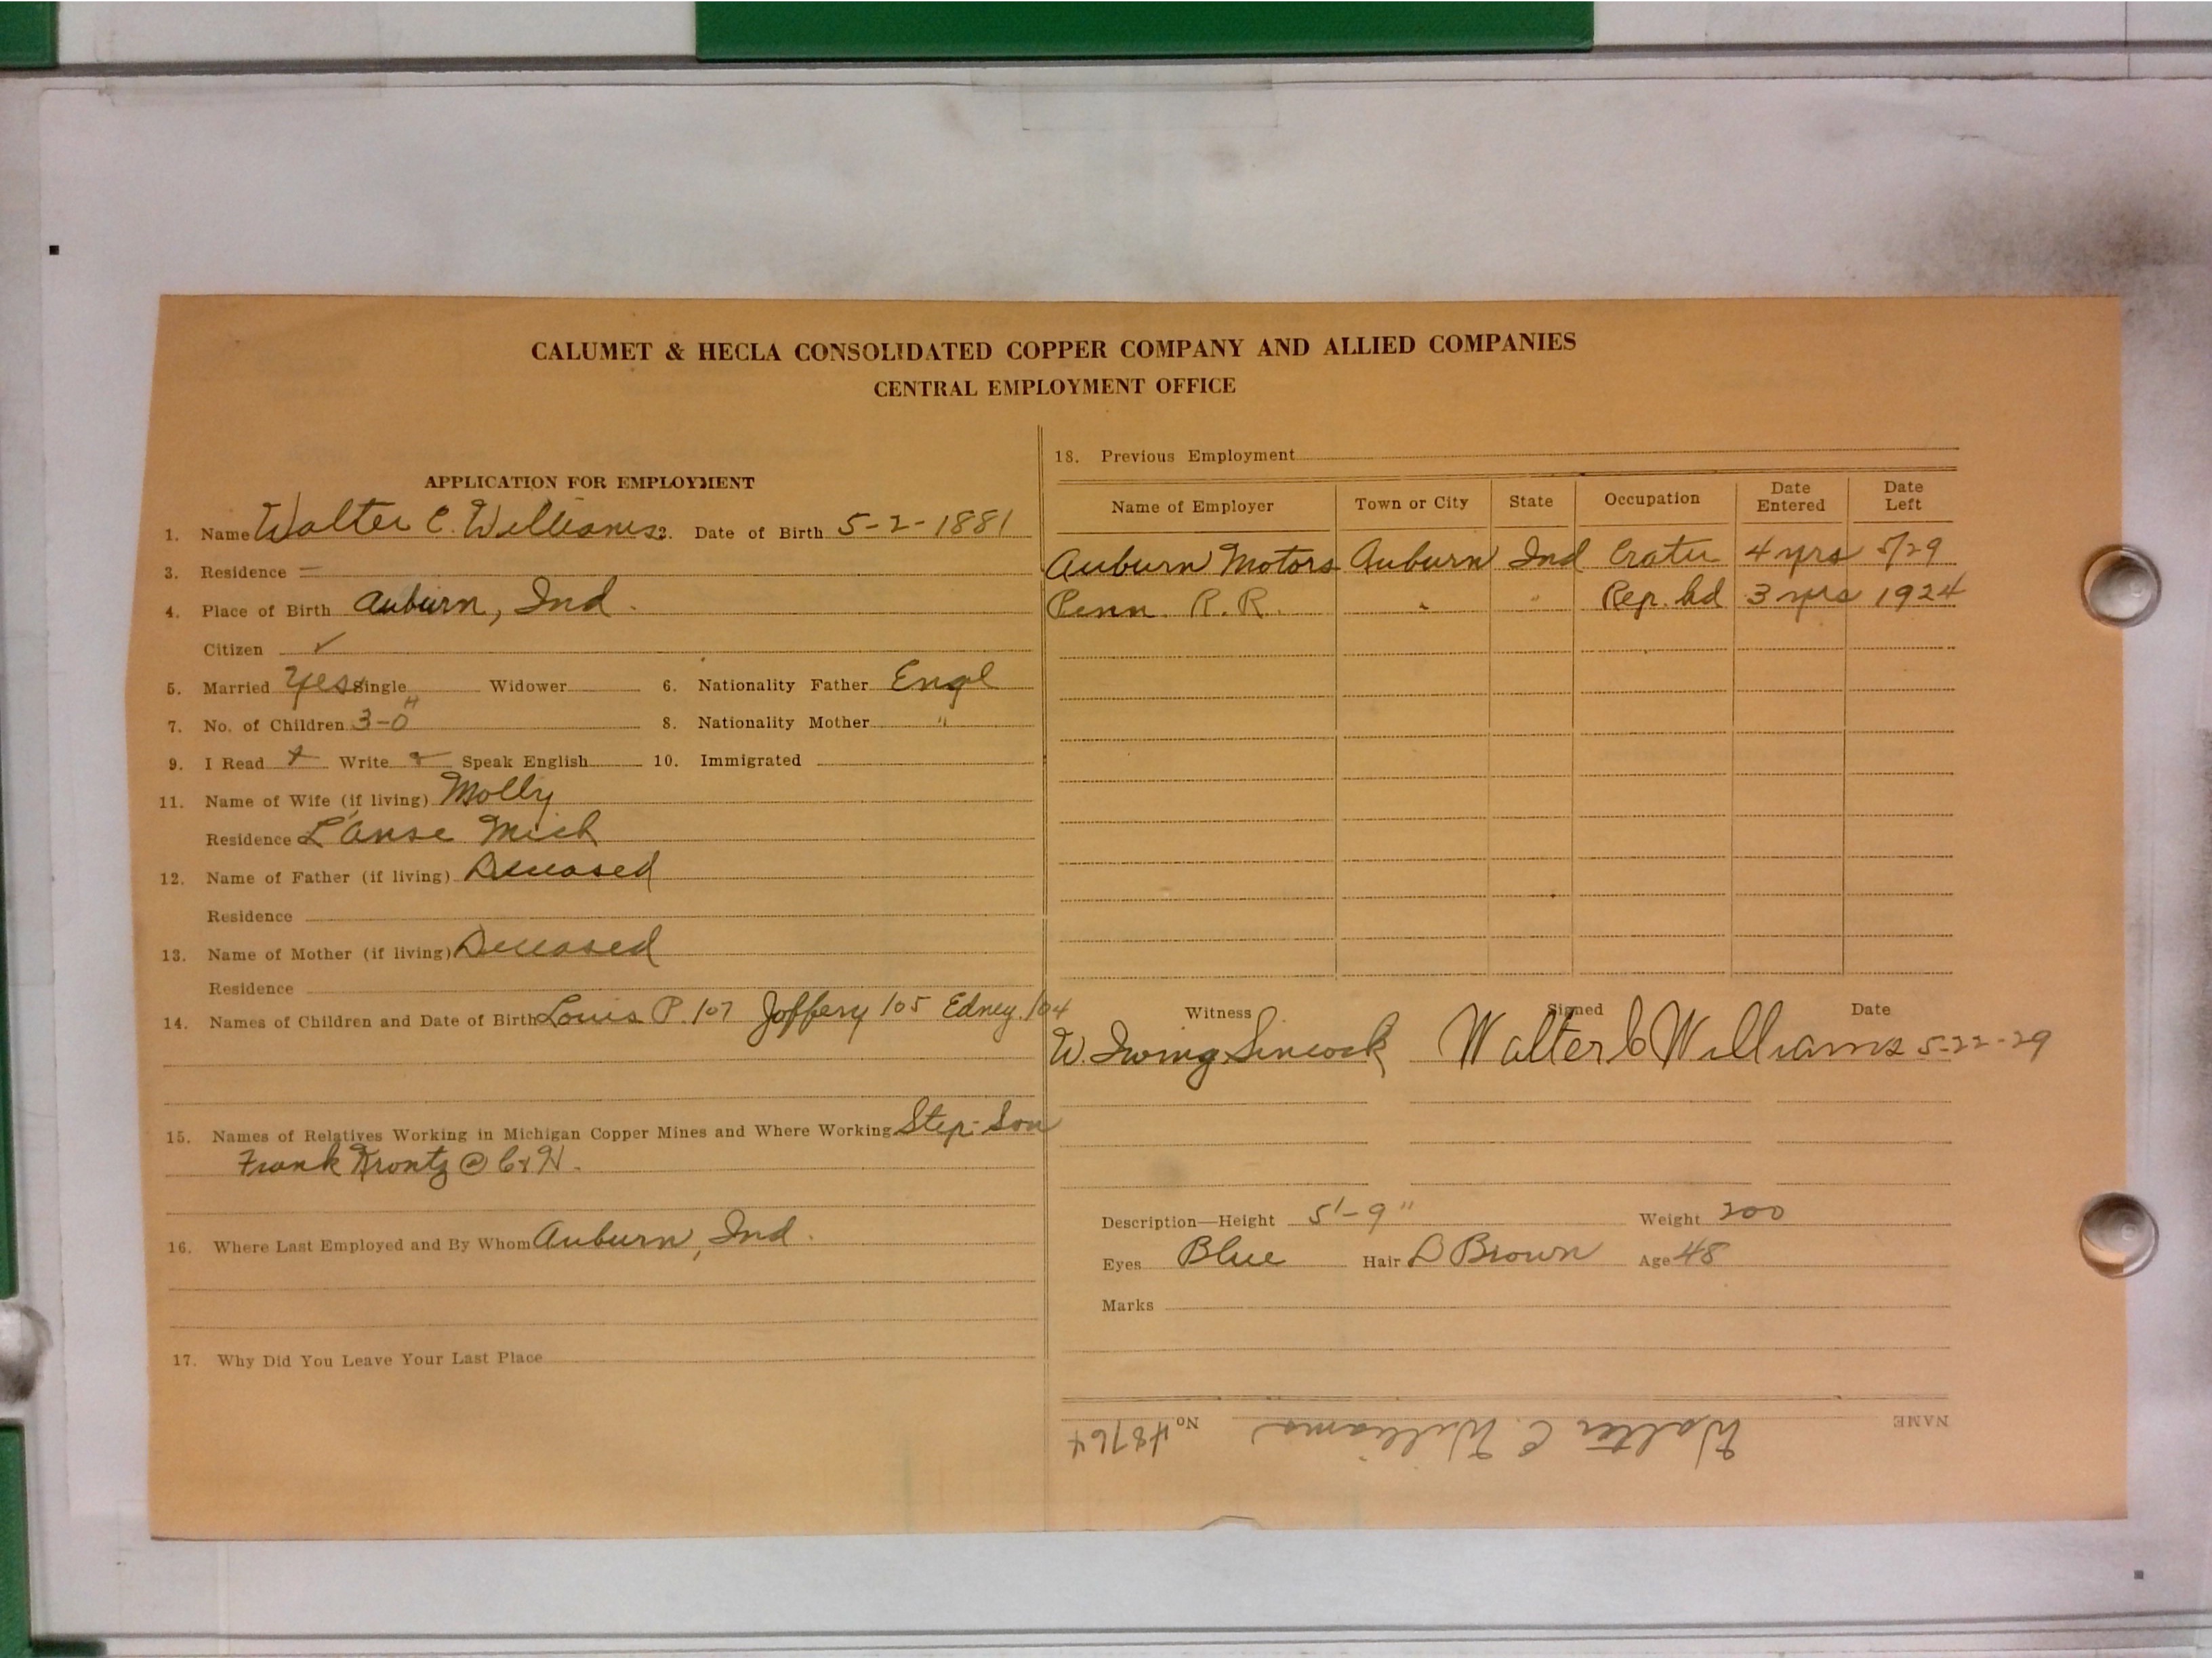 CALUMET & HECLA CONSOLIDATED COPPER COMPANY AND ALLIED COMPANIES
CENTRAL EMPLOYMENT OFFICE
APPLICATION FOR EMPLOYMENT
1. Name Walter C. Williams 2. Date of Birth 5-2-1881
3. Residence =
4. Place of Birth Auburn, Ind.
Citizen ✓
5. Married Yes Single Widower 6. Nationality Father Engl
7. No. of Children 3-0 H 8. Nationality Mother "
9. I Read Write Speak English 10. Immigrated
11. Name of Wife (if living) Molly
Residence L'Anse Mich
12. Name of Father (if living) Deceased
Residence
13. Name of Mother (if living) Deceased
Residence
14. Names of Children and Date of Birth Louis P. 107 Joffery 105 Edney. 104
15. Names of Relatives Working in Michigan Copper Mines and Where Working Step-Son
Frank Krontz @ C & H.
16. Where Last Employed and By Whom Auburn, Ind.
17. Why Did You Leave Your Last Place
18. Previous Employment
Name of Employer Town or City State Occupation Date Entered Date Left
Auburn Motors Auburn Ind Crater 4 yrs 5/29
Penn. R.R. " " Rep. hd 3 yrs 1924
Witness Signed Date
W. Irving Sincock Walter C Williams 5-22-29
Description—Height 5'-9" Weight 200
Eyes Blue Hair D Brown Age 48
Marks
NAME Walter C. Williams No. 48764